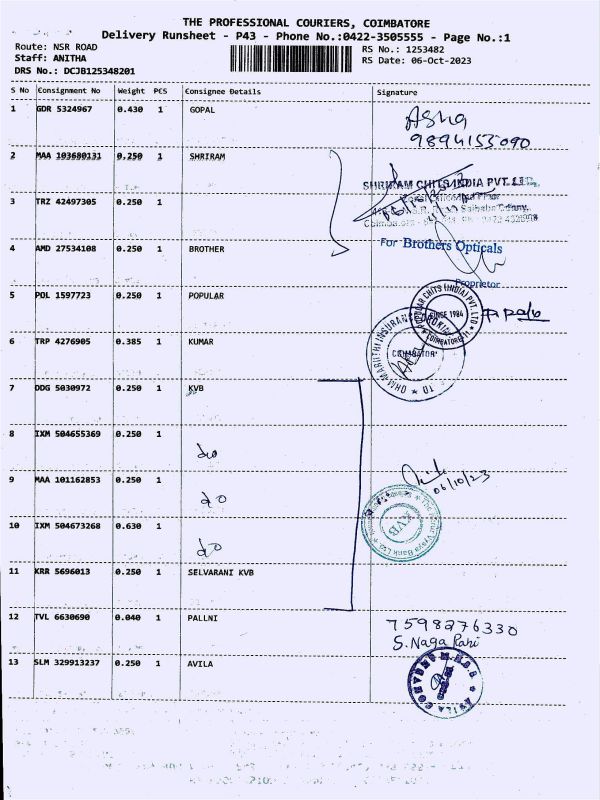 THE PROFESSIONAL COURIERS, COIMBATORE
Delivery Runsheet - P43 - Phone No.:0422-3505555 - Page No.:1
Route: NSR ROAD
Staff: ANITHA
DRS No.: DCJB125348201
RS No.: 1253482
RS Date: 06-Oct-2023
S No Consignment No Weight PCS Consignee Details Signature
1 GDR 5324967 0.430 1 GOPAL
Asha
9894153090
2 MAA 103680131 0.250 1 SHRIRAM
SHRIRAM CHITS INDIA PVT. LTD.
3 TRZ 42497305 0.250 1
4 AMD 27534108 0.250 1 BROTHER
For Brothers Opticals
Proprietor
5 POL 1597723 0.250 1 POPULAR
POPULAR CHITS (INDIA) PVT. LTD
SINCE 1984
COIMBATORE-11
6 TRP 4276905 0.385 1 KUMAR
COIMBATOR
7 DDG 5030972 0.250 1 KVB
8 IXM 504655369 0.250 1 do
9 MAA 101162853 0.250 1 do
06/10/23
10 IXM 504673268 0.630 1 do
KVB
11 KRR 5696013 0.250 1 SELVARANI KVB
12 TVL 6630690 0.040 1 PALLNI
7598276330
S. Naga Rani
13 SLM 329913237 0.250 1 AVILA
AVILA CONVENT